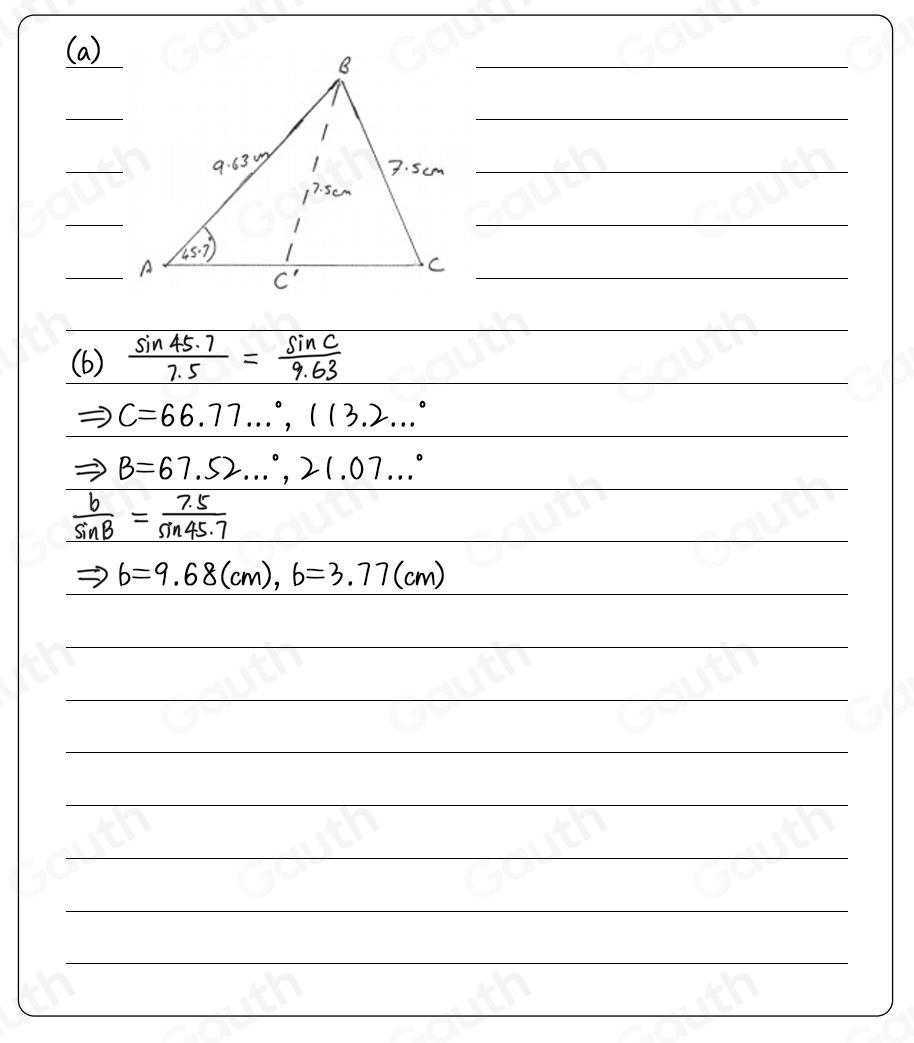 (a)
B
9.63cm
7.5cm
7.5cm
45.7°
A
C'
C
(b) sin 45.7 / 7.5 = sin C / 9.63
⇒ C=66.77...°, 113.2...°
⇒ B=67.52...°, 21.07...°
b / sin B = 7.5 / sin 45.7
⇒ b=9.68(cm), b=3.77(cm)
Gauth